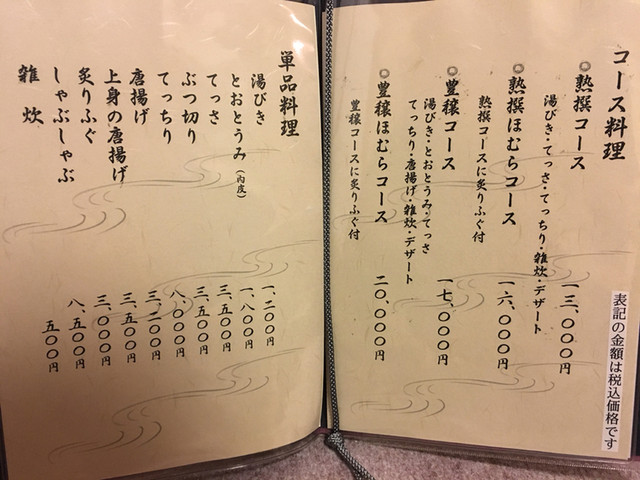 表記の金額は税込価格です
コース料理
◎熟撰コース 一三、〇〇〇円
湯びき・てっさ・てっちり・雑炊・デザート
◎熟撰ほむらコース 一六、〇〇〇円
熟撰コースに炙りふぐ付
◎豊穣コース 一七、〇〇〇円
湯びき・とおとうみ・てっさ
てっちり・唐揚げ・雑炊・デザート
◎豊穣ほむらコース 二〇、〇〇〇円
豊穣コースに炙りふぐ付
単品料理
湯びき 一、二〇〇円
とおとうみ(内皮) 一、八〇〇円
てっさ 三、五〇〇円
ぶつ切り 三、五〇〇円
てっちり 八、〇〇〇円
唐揚げ 三、二〇〇円
上身の唐揚げ 三、五〇〇円
炙りふぐ 三、〇〇〇円
しゃぶしゃぶ 八、五〇〇円
雑炊 五〇〇円